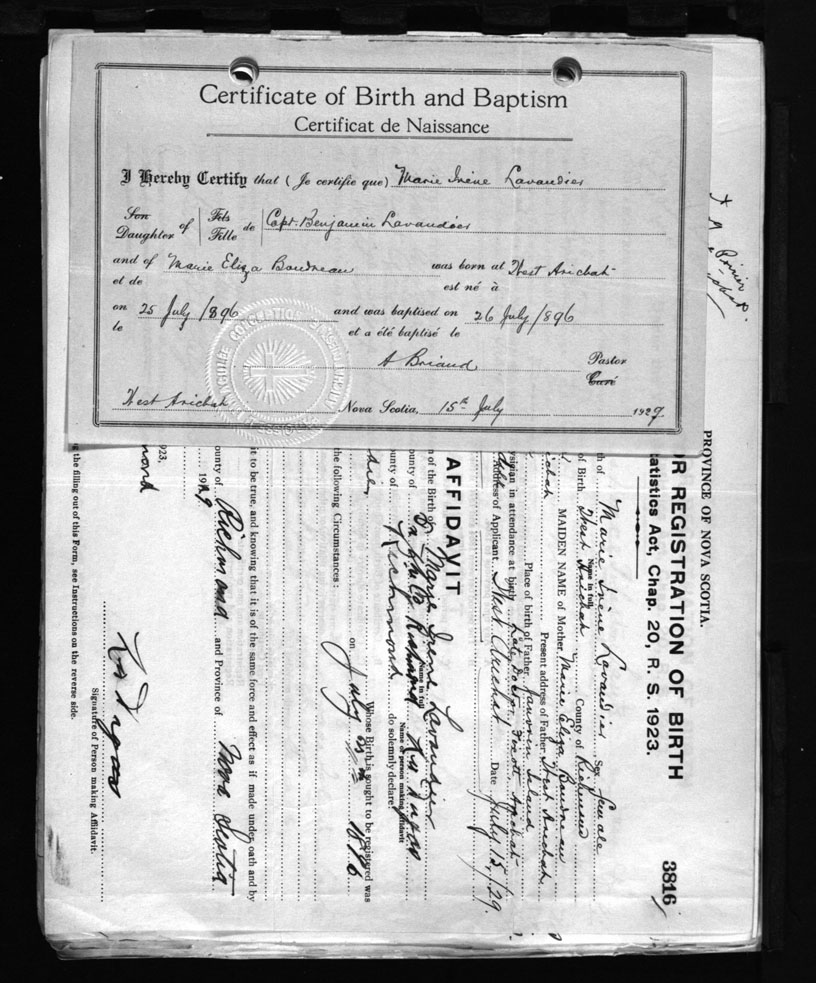 Certificate of Birth and Baptism
Certificat de Naissance
I Hereby Certify that (Je certifie que) Marie Irène Lavandier
Son Daughter of Fils Fille de Capt. Benjamin Lavandier
and of Marie Eliza Boudreau was born at West Arichat
et de est né à
on 25 July 1896 and was baptised on 26 July 1896
le et a été baptisé le
A Briand Pastor
Curé
West Arichat Nova Scotia, 15th July 1929
PROVINCE OF NOVA SCOTIA.
R REGISTRATION OF BIRTH
tatistics Act, Chap. 20, R. S. 1923.
3816
th of Marie Irène Lavandier Sex female
Name in full
of Birth West Arichat County of Richmond
MAIDEN NAME of Mother Marie Eliza Boudreau
ichat Present address of Father West Arichat
Place of birth of Father Island
ysician in attendance at birth Late Doctor
Address of Applicant West Arichat Date July 15/29.
AFFIDAVIT
n of the Birth of Marie Irene Lavandier
Name in full
ounty of Richmond do solemnly declare
Name of person making affidavit
Whose Birth is sought to be registered was
on July 25th 1896
he following Circumstances:
it to be true, and knowing that it is of the same force and effect as if made under oath and by
ounty of Richmond and Province of Nova Scotia
1929
1923,
mond
Signature of Person making Affidavit.
g the filling out of this Form, see Instructions on the reverse side.